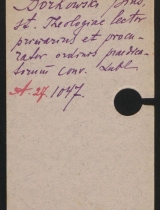 Borkowski Joh.,
st. Theologiae lector
primarius et procu-
rator ordinis praedica-
torum conv. Lubl.
A. 27. 1047.